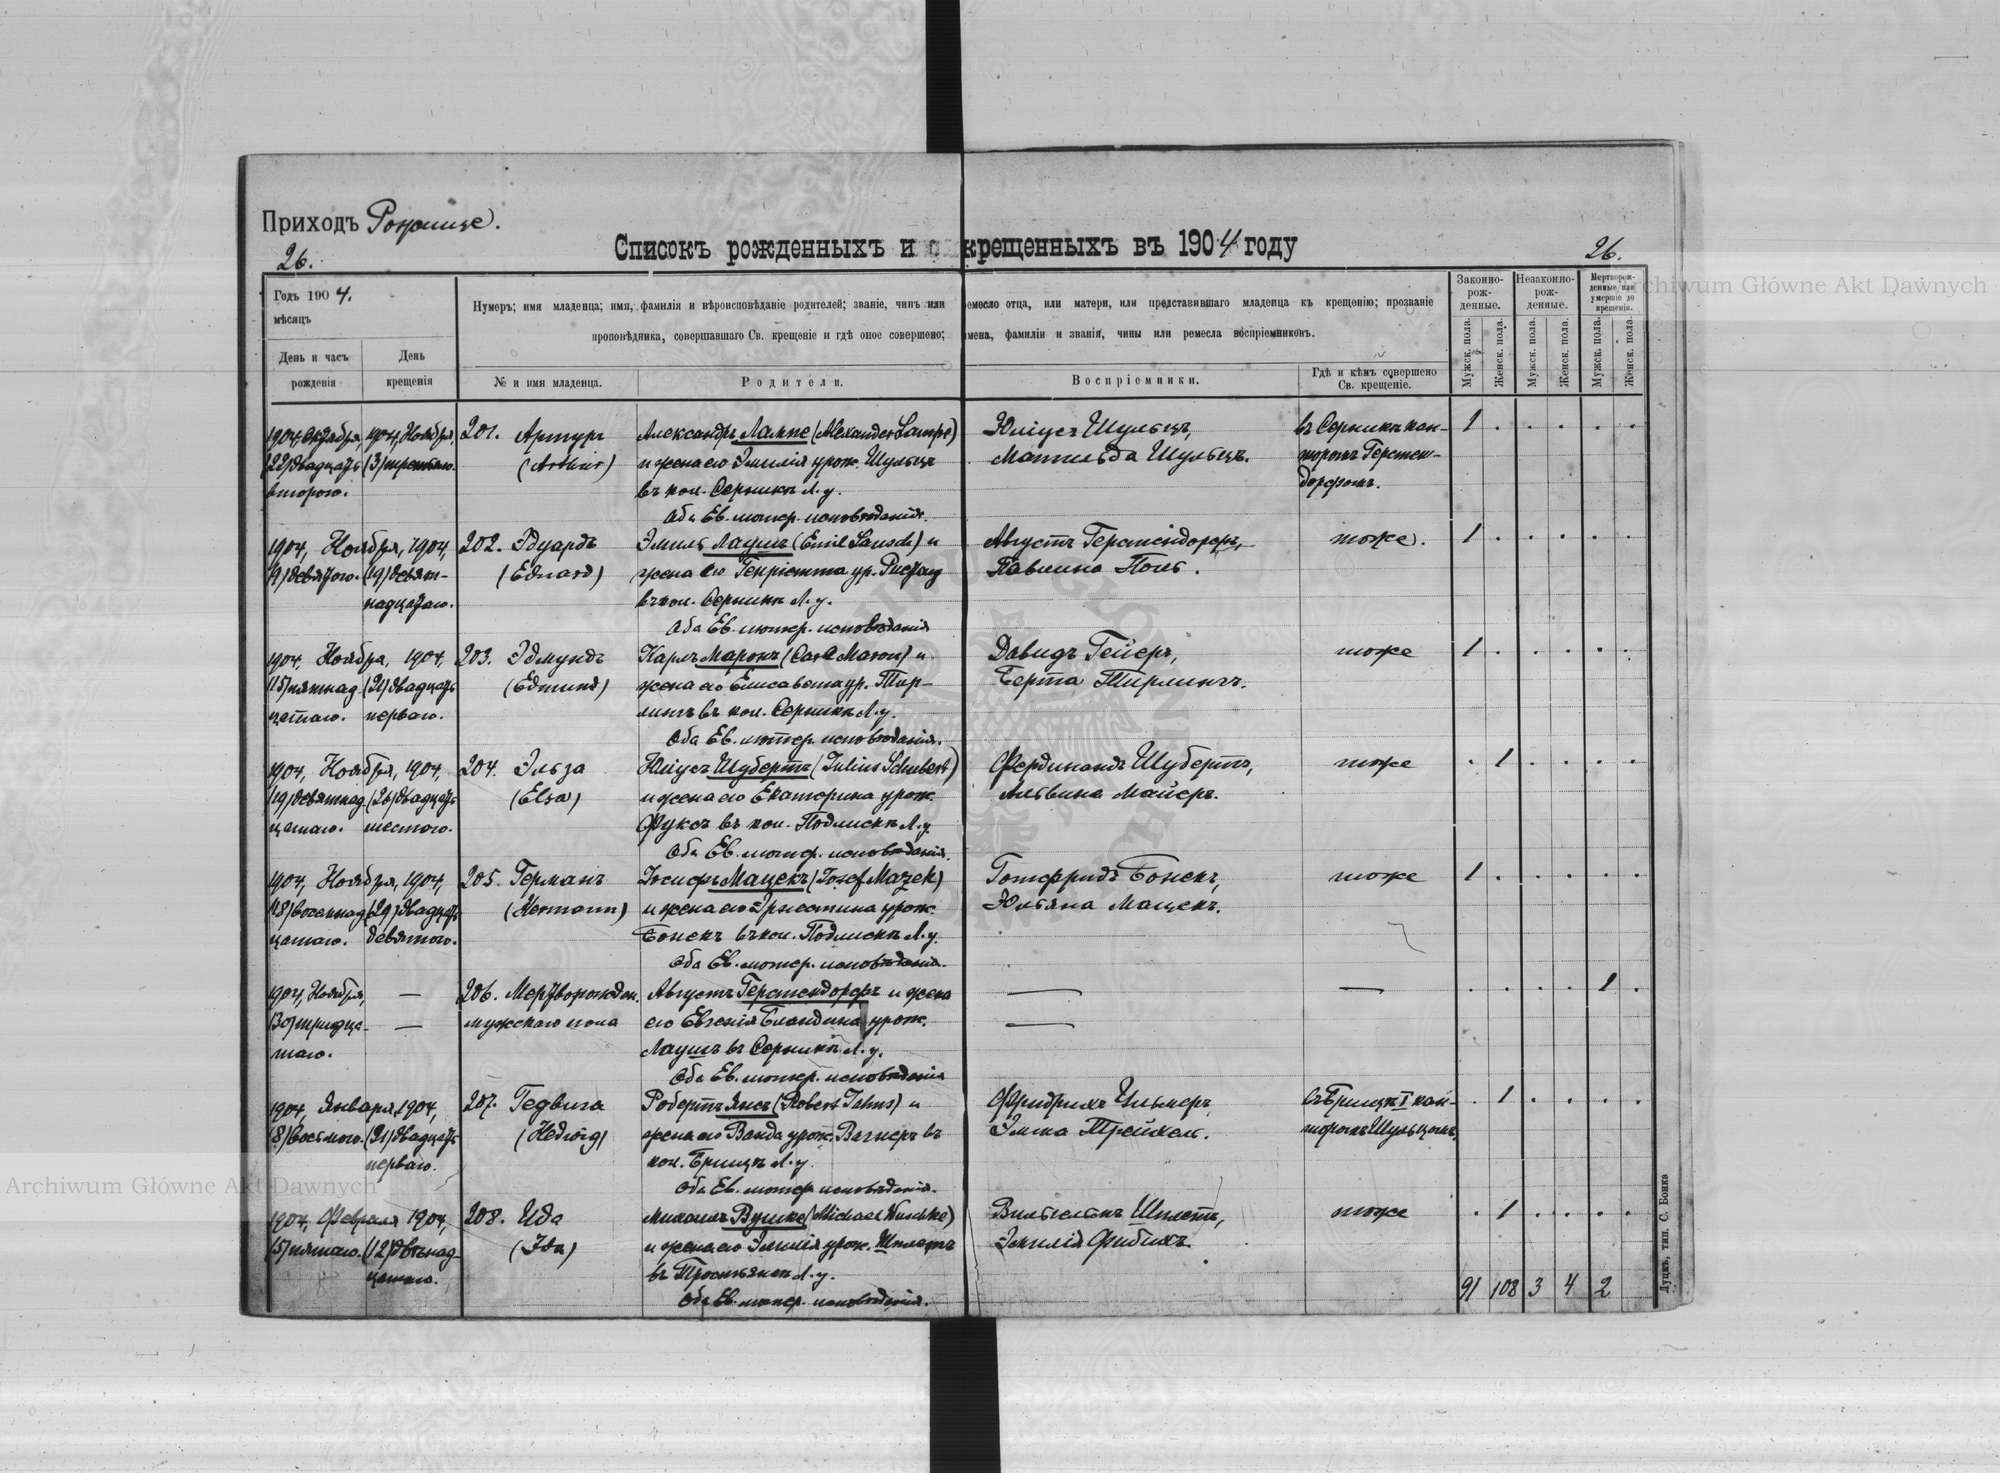 Приходъ Рожище.
26.
Списокъ рожденныхъ и крещенныхъ въ 1904 году
26.
Годъ 1904.
мѣсяцъ
День и часъ рожденія
День крещенія
Нумеръ; имя младенца; имя, фамилія и вѣроисповѣданіе родителей; званіе, чинъ или ремесло отца, или матери, или представившаго младенца къ крещенію; прозваніе
проповѣдника, совершавшаго Св. крещеніе и гдѣ оное совершено; имена, фамиліи и званія, чины или ремесла воспріемниковъ.
№ и имя младенца.
Родители.
Воспріемники.
Гдѣ и кѣмъ совершено Св. крещеніе.
Законно-рож-денные.
Незаконно-рож-денные.
Мертворож-денные или умершіе до крещенія.
Мужск. пола.
Женск. пола.
Мужск. пола.
Женск. пола.
Мужск. пола.
Женск. пола.
1904, Октября, 1904, Ноября, 201. Артуръ Александръ Лампе (Alexander Lampe) Юліусъ Шульцъ, въ Серникъ кан- 1 . . . . .
(22) двадцать (3) третьяго. (Arthur) и жена его Эмилія урож. Шульцъ Матильда Шульцъ. торомъ Герстен-
второго. въ кол. Серники Л. у. дорфомъ.
Оба Ев. лютер. исповѣданія.
1904, Ноября, 1904, 202. Эдуардъ Эмиль Лаушъ (Emil Lausch) и Августъ Герстендорфъ, тоже. 1 . . . . .
(9) девятого. (19) девят- (Eduard) жена его Генріетта ур. Павлина Поль.
надцатаго. въ кол. Серники Л. у.
Оба Ев. лютер. исповѣданія
1904, Ноября, 1904, 203. Эдмундъ Карлъ Маронъ (Carl Maron) и Давидъ Гейеръ, тоже 1 . . . . .
(15) пятнад- (21) двадцать (Edmund) жена его Елисавета ур. Тир- Берта Тирлингъ.
цатаго. перваго. лингъ въ кол. Серники Л. у.
Оба Ев. лютер. исповѣданія.
1904, Ноября, 1904, 204. Эльза Юліусъ Шубертъ (Julius Schubert) Фердинандъ Шубертъ, тоже . 1 . . . .
(19) девятнад- (26) двадцать (Elsa) и жена его Екатерина урож. Альвина Майеръ.
цатаго. шестого. Фуксъ въ кол. Подлиски Л. у.
Оба Ев. лютер. исповѣданія.
1904, Ноября, 1904, 205. Германъ Іосифъ Мацекъ (Josef Mazek) Готфридъ Бонекъ, тоже 1 . . . . .
(18) восемнад- (29) двадцать (Hermann) и жена его Эрнестина урож. Юльяна Мацекъ.
цатаго. девятого. Бонекъ въ кол. Подлиски Л. у.
Оба Ев. лютер. исповѣданія.
1904, Ноября, — 206. Мертворожден. Августъ Герстендорфъ и жена — — . . . . 1 .
(30) тридца- — мужскаго пола его Евгенія Бландина урож. —
таго. Лаушъ въ Серники Л. у.
Оба Ев. лютер. исповѣданія
1904, Января, 1904, 207. Гедвига Робертъ Янсъ (Robert Jahns) и Фридрихъ въ Брищи I кан- . 1 . . . .
(8) восьмого. (21) двадцать (Hedwig) жена его Ванда урож. Вагнеръ въ Эмма торомъ Шульцомъ.
перваго. кол. Брищи Л. у.
Оба Ев. лютер. исповѣданія.
1904, Февраля 1904, 208. Ида Михаилъ Вушке (Michael Wuschke) Вильгельмъ Шплеттъ, тоже . 1 . . . .
(5) пятаго. (12) двѣнад- (Ida) и жена его Эмилія урож. Шплеттъ Эмилія Фибихъ.
цатаго. въ Тростянецъ Л. у.
Оба Ев. лютер. исповѣданія.
91 108 3 4 2
Луцкъ, тип. С. Бонка
Archiwum Główne Akt Dawnych
Archiwum Główne Akt Dawnych